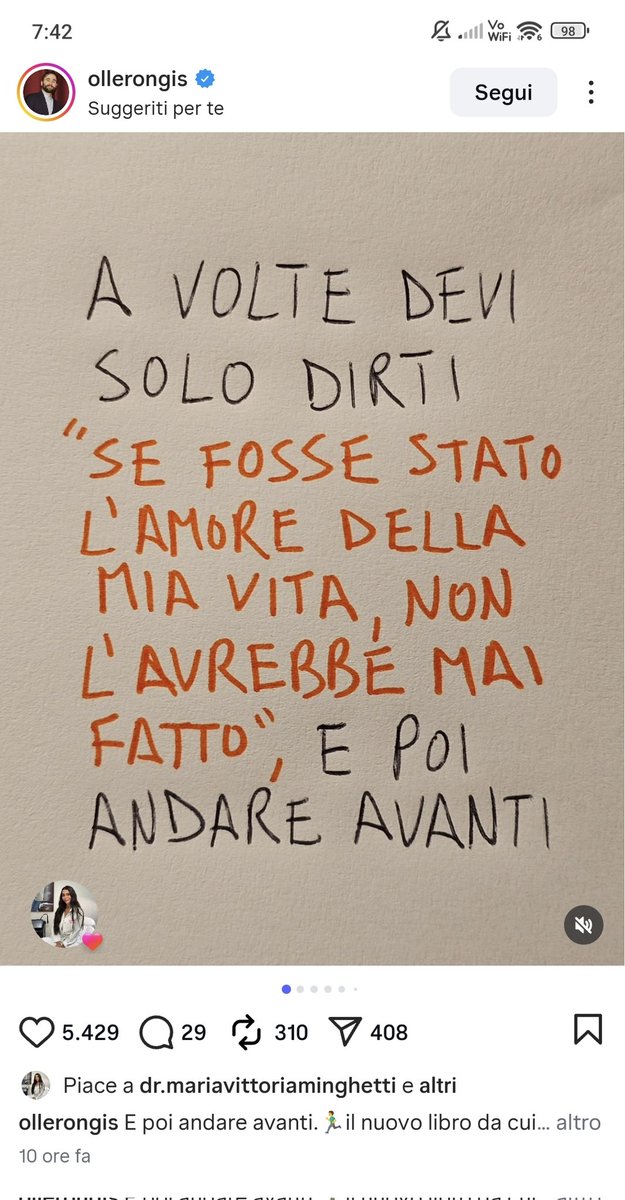 7:42
Vo
WiFi
6
98
ollerongis
Suggeriti per te
Segui
A VOLTE DEVI
SOLO DIRTI
"SE FOSSE STATO
L'AMORE DELLA
MIA VITA, NON
L'AVREBBE MAI
FATTO", E POI
ANDARE AVANTI
5.429
29
310
408
Piace a dr.mariavittoriaminghetti e altri
ollerongis E poi andare avanti.🏃‍♂️il nuovo libro da cui... altro
10 ore fa